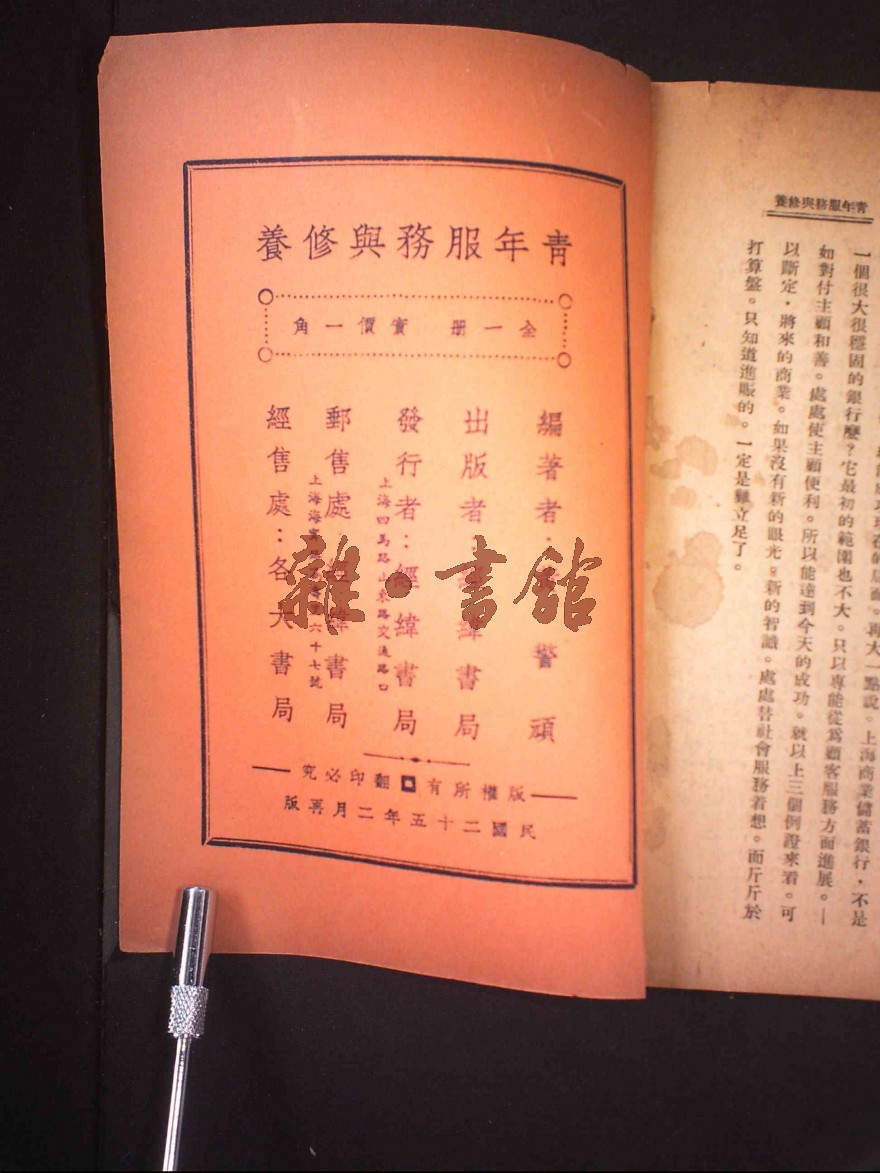 青年服務與修養
全一册 實價一角
編著者 警頑
出版者 緯書局
發行者：經緯書局
上海四馬路山東路交通路口
郵售處 經緯書局
上海海 六十七號
經售處：各大書局
版權所有 翻印必究
民國二十五年二月再版
雜·書館
青年服務與修養
一個很大很穩固的銀行麼？它最初的範圍也不大。只以專能從爲顧客服務方面進展。—
如對付主顧和善。處處使主顧便利。所以能達到今天的成功。就以上三個例證來看。可
以斷定，將來的商業。如果沒有新的眼光。新的智識。處處替社會服務着想。而斤斤於
打算盤。只知道進賬的。一定是難立足了。
再大一點說。上海商業儲蓄銀行，不是